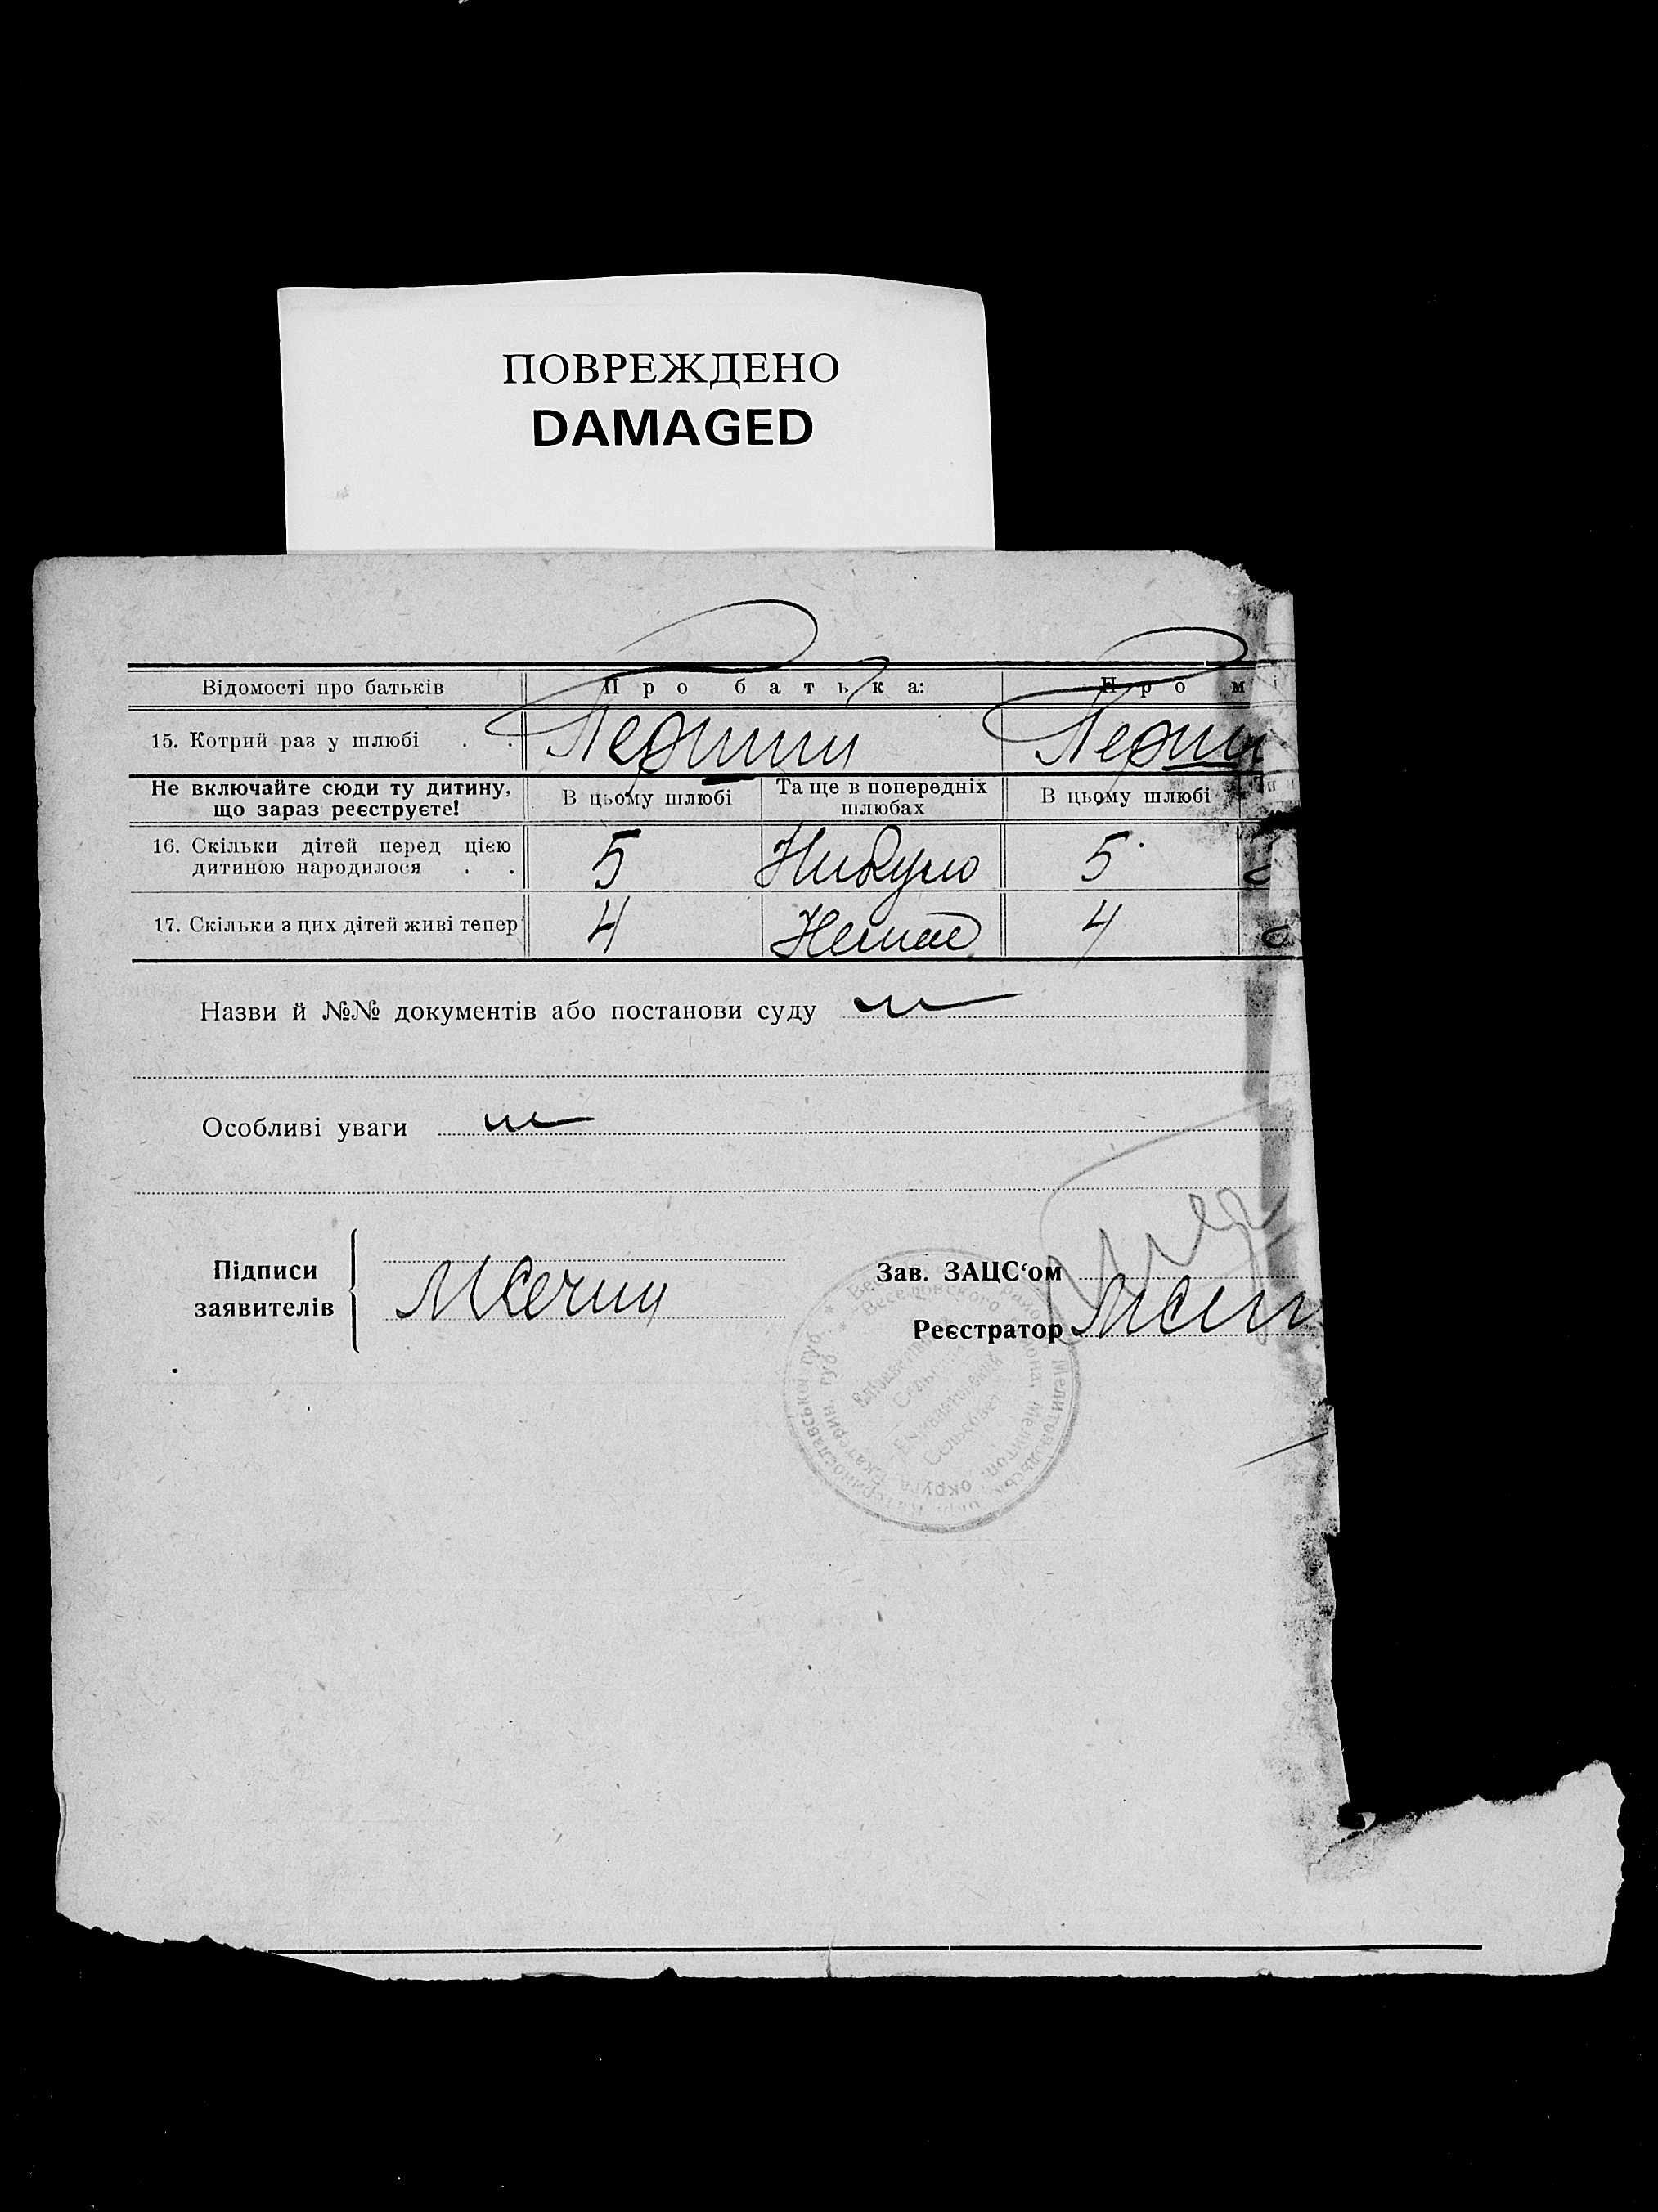 ПОВРЕЖДЕНО
DAMAGED
Відомості про батьків
Про батька:
Про м
15. Котрий раз у шлюбі . .
Перший
Перши
Не включайте сюди ту дитину,
що зараз реєструєте!
В цьому шлюбі
Та ще в попередніх
шлюбах
В цьому шлюбі
16. Скільки дітей перед цією
дитиною народилося . .
5
Нибуло
5
17. Скільки з цих дітей живі тепер
4
Немає
4
Назви й №№ документів або постанови суду
Особливі уваги
Підписи
заявителів
Зав. ЗАЦС‘ом
Реєстратор
Веселовского района, Мелитоп. округа Екатерин. губ.
Сельсовет